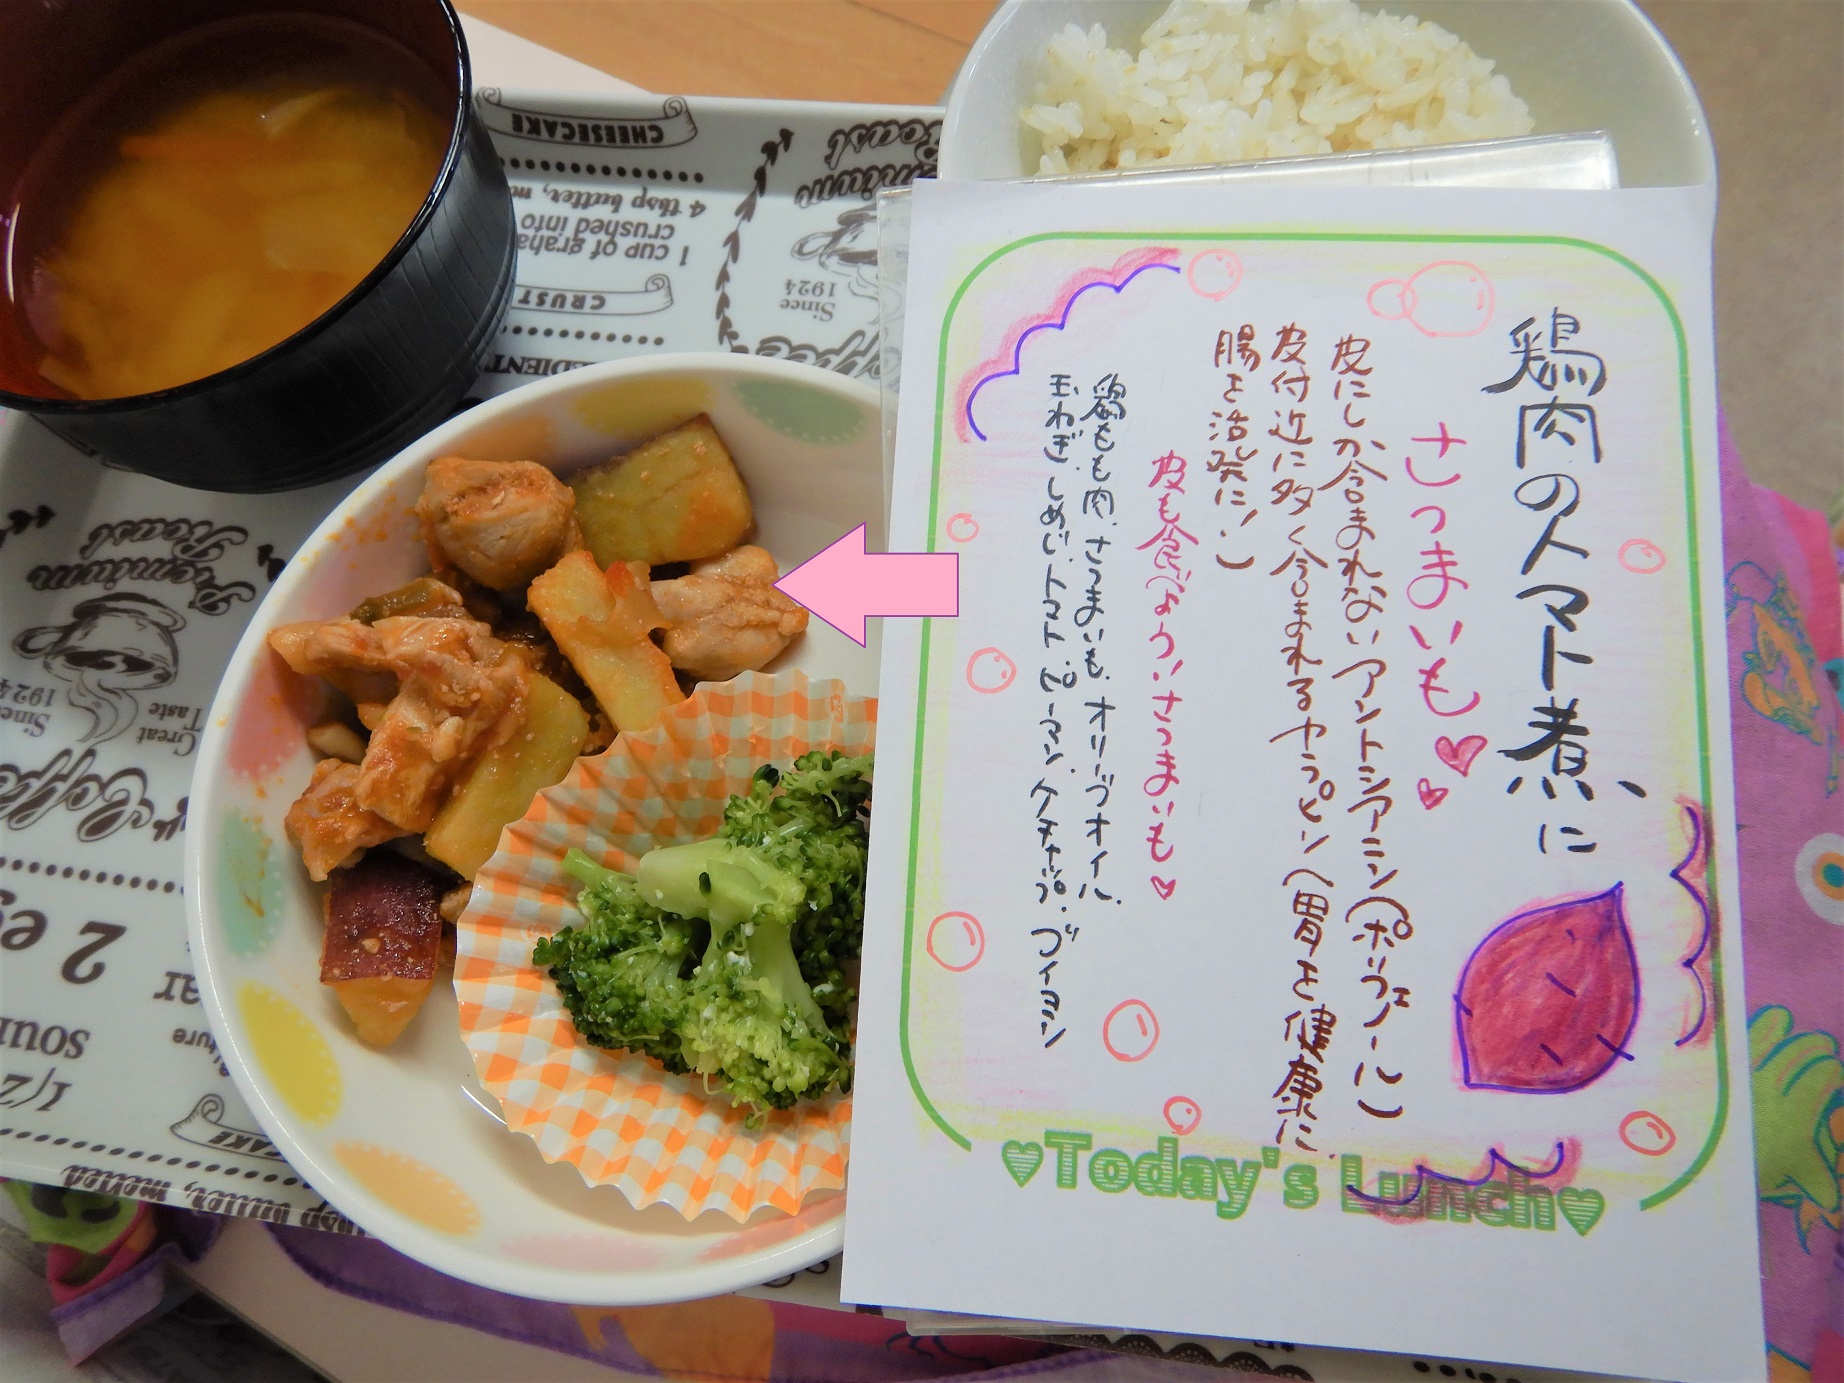 鶏肉のトマト煮に、
さつまいも
皮にしか含まれないアントシアニン(ポリフェノール)
皮付近に多く含まれるヤラピン(胃を健康に、
腸を活発に!)
皮も食べよう!さつまいも
鶏もも肉、さつまいも、オリーブオイル、
玉ねぎ、しめじ、トマト、ピーマン、ケチャップ、ブイヨン
Today's Lunch
CHEESECAKE
4 tbsp butter, m
crushed into
1 cup of graha
CRUST
Since
1924
Premium
Roast
Since
1924
Great
Taste
Coffee
2 eg
1/2
sour
butter, melted